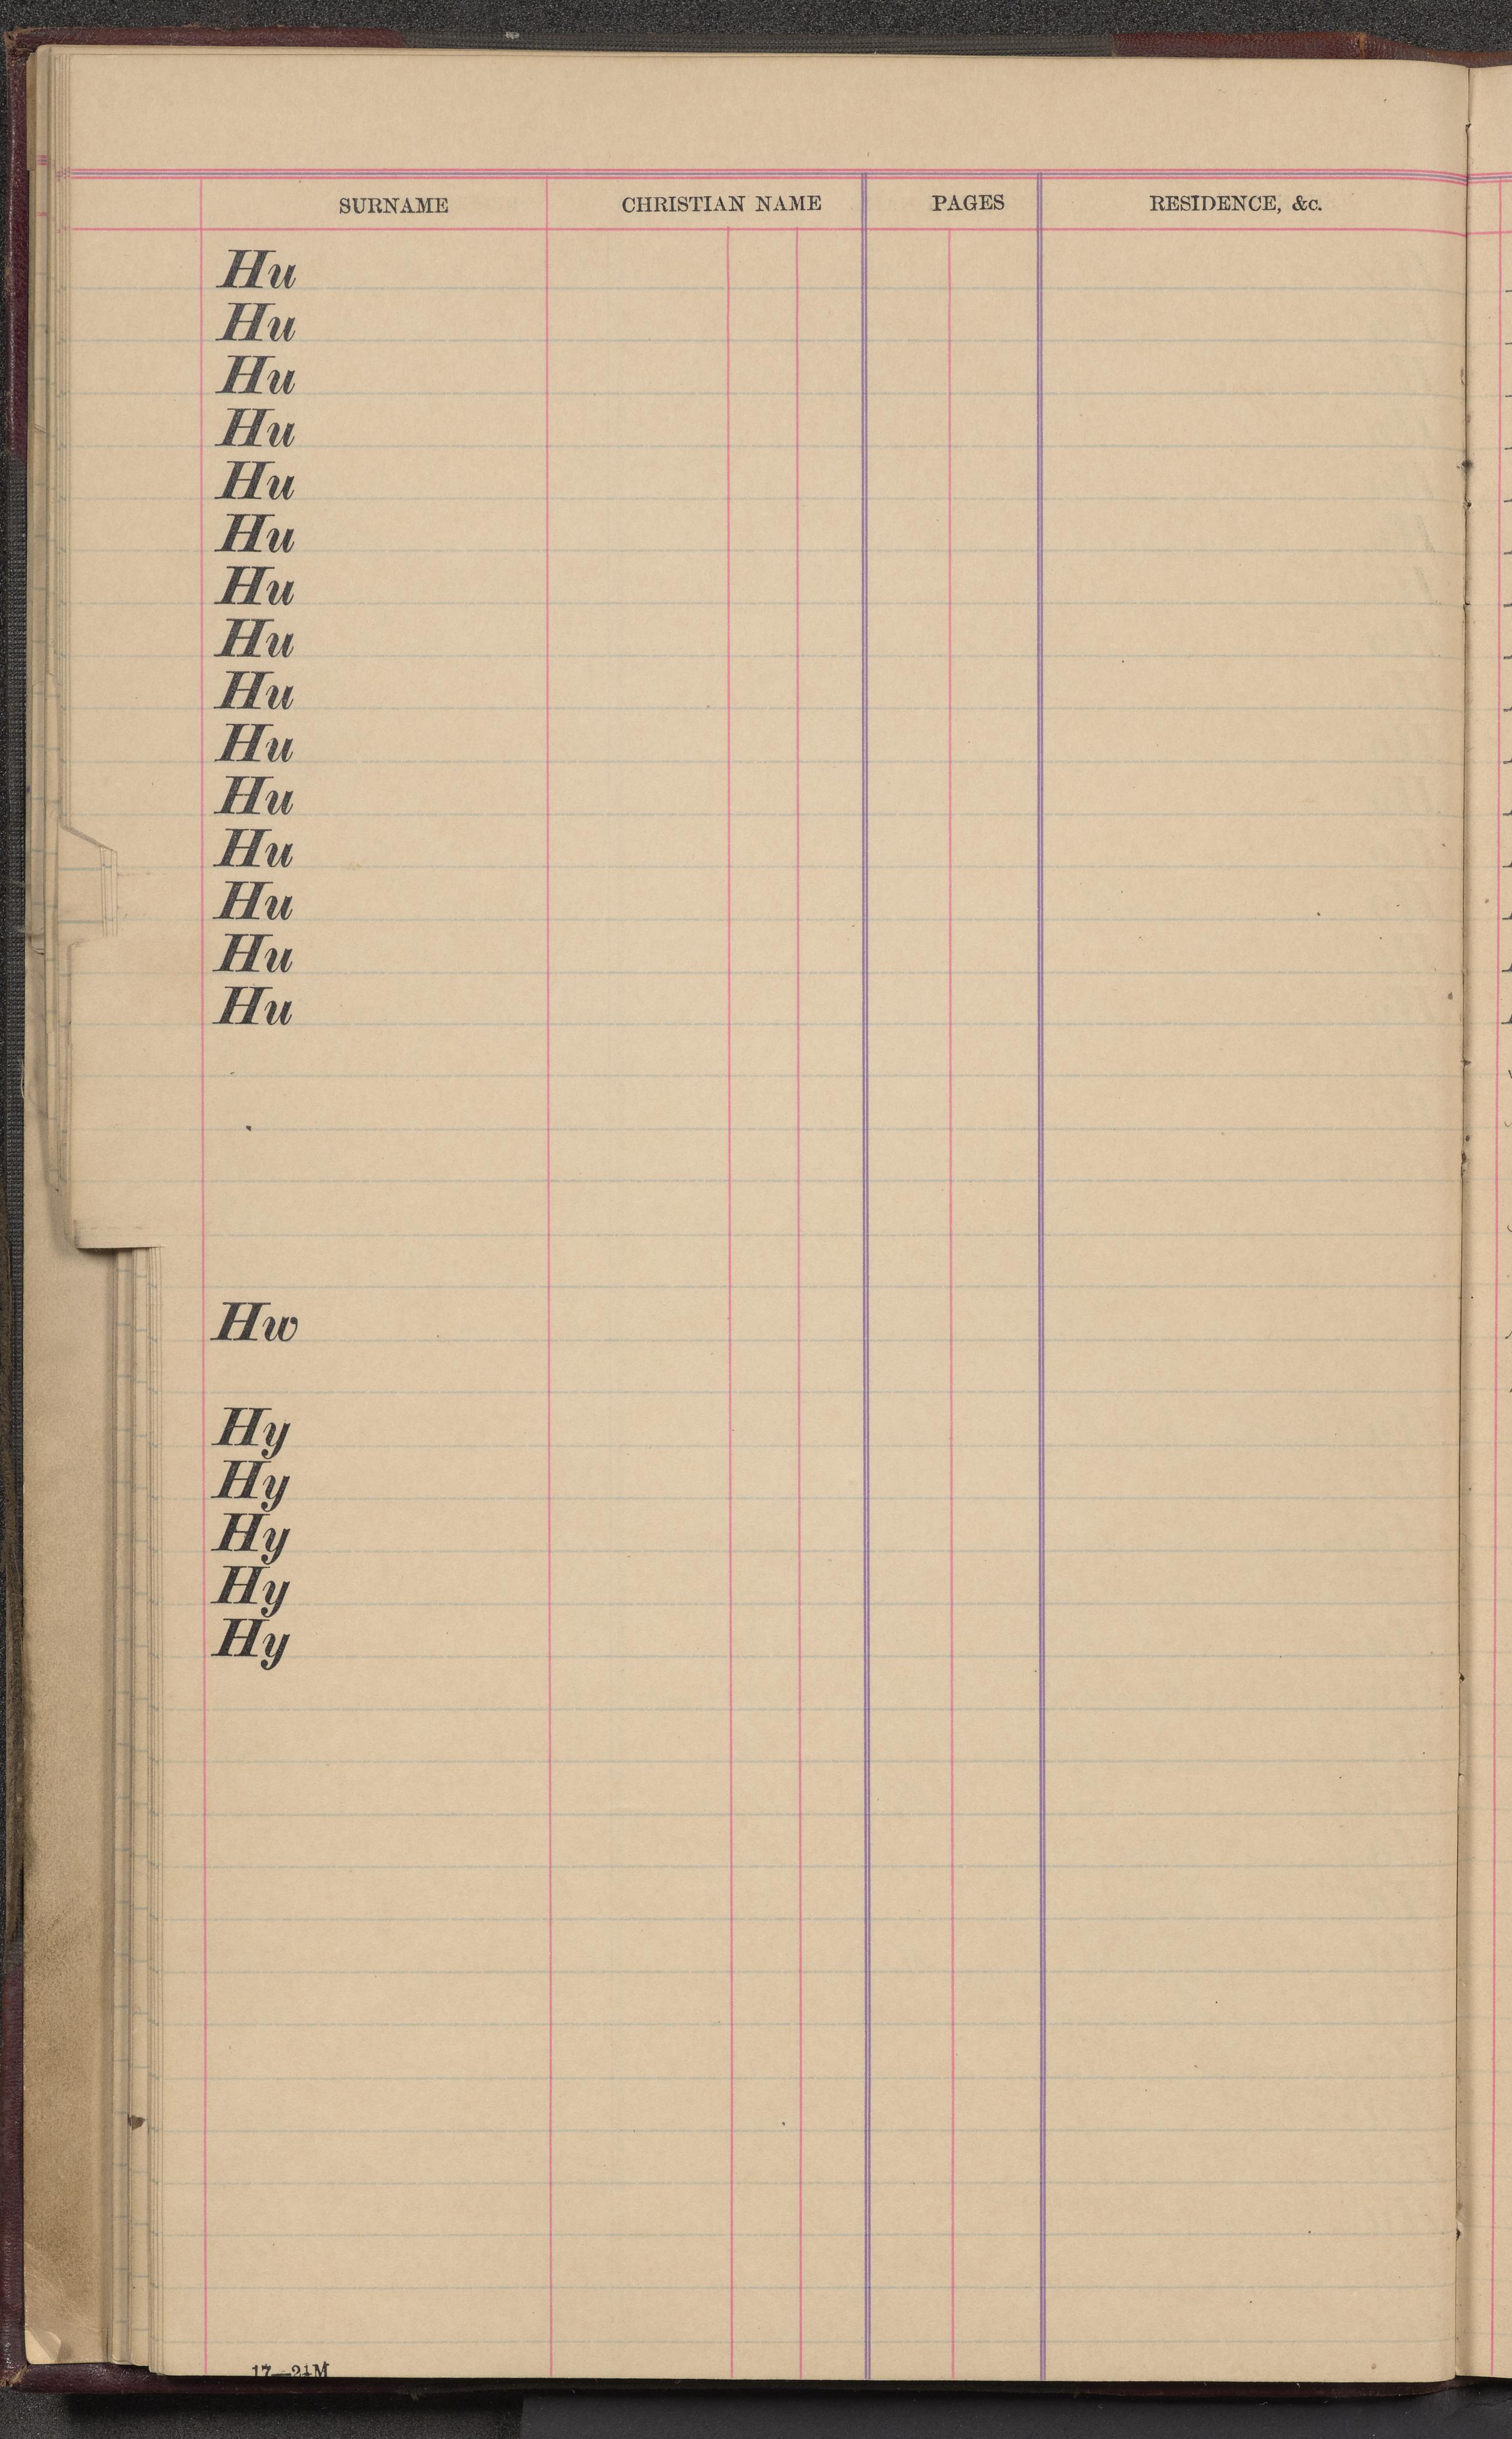 SURNAME CHRISTIAN NAME PAGES RESIDENCE, &c.
Hu
Hu
Hu
Hu
Hu
Hu
Hu
Hu
Hu
Hu
Hu
Hu
Hu
Hu
Hu
Hw
Hy
Hy
Hy
Hy
Hy
17—2½M